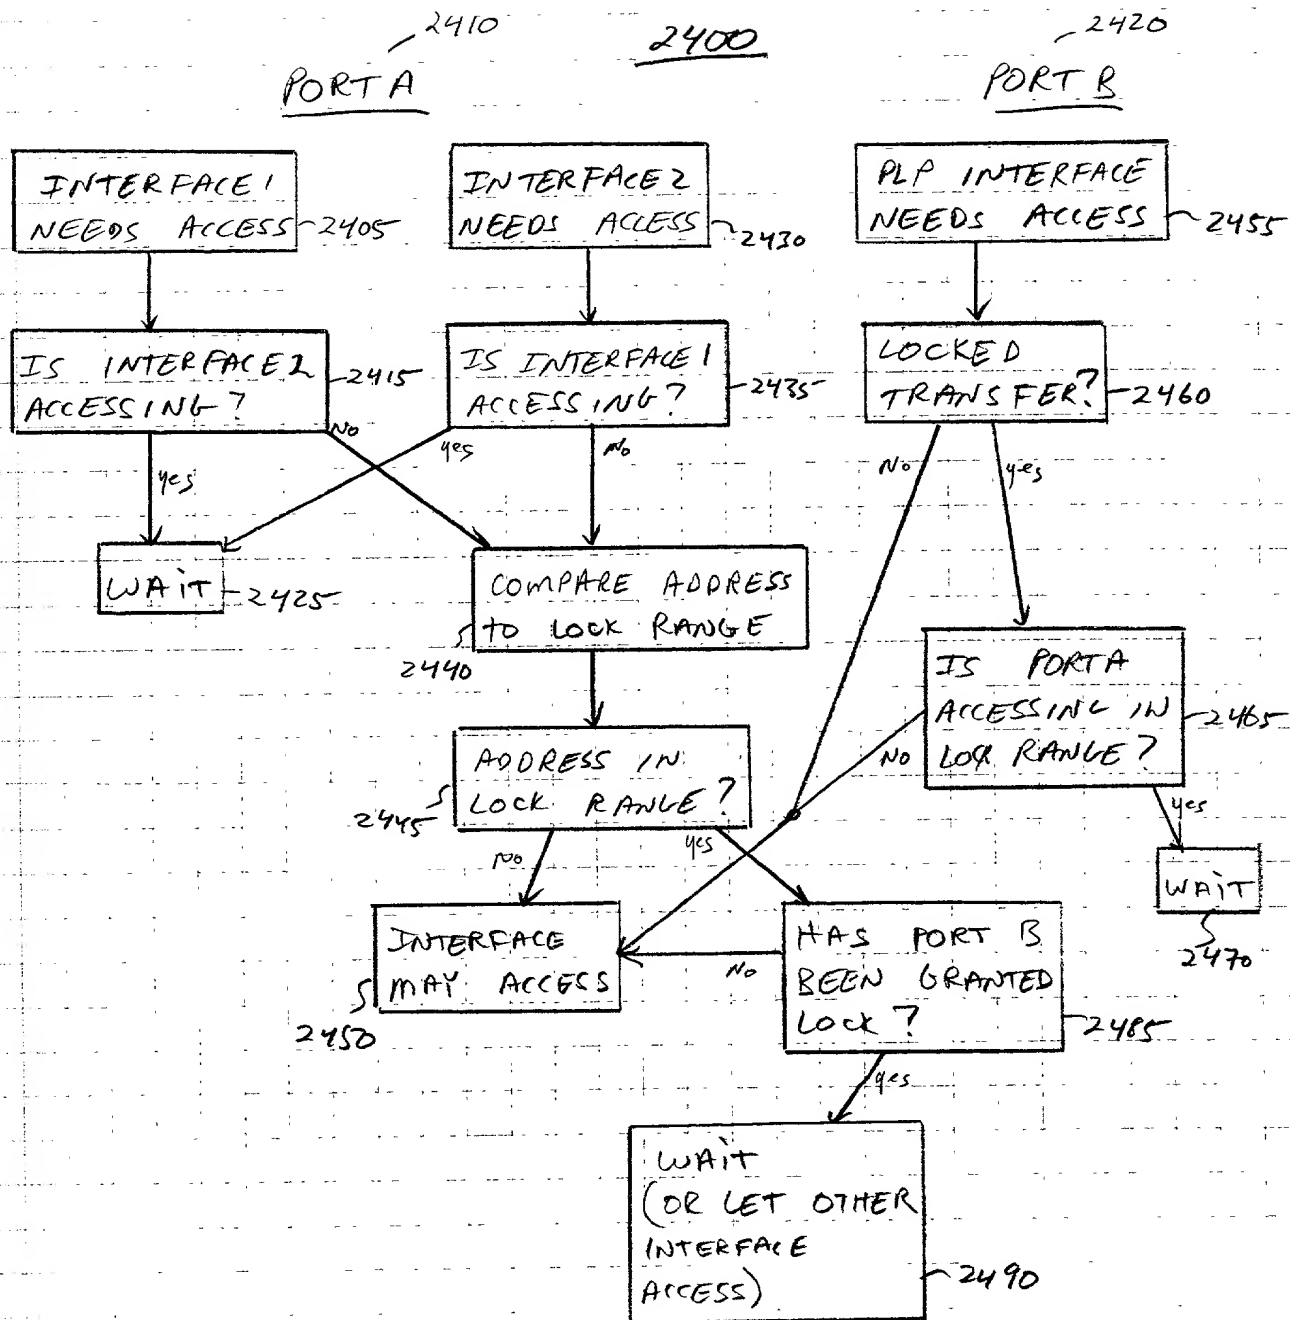 2410
2400
2420
PORT A
PORT B
INTERFACE 1
NEEDS ACCESS
2405
INTERFACE 2
NEEDS ACCESS
2430
PLP INTERFACE
NEEDS ACCESS
2455
IS INTERFACE 2
ACCESSING?
2415
IS INTERFACE 1
ACCESSING?
2435
LOCKED
TRANSFER?
2460
No
yes
yes
No
No
yes
WAIT
2425
COMPARE ADDRESS
TO LOCK RANGE
2440
IS PORT A
ACCESSING IN
LOCK RANGE?
2465
No
yes
ADDRESS IN
LOCK RANGE?
2445
No
yes
WAIT
2470
INTERFACE
MAY ACCESS
2450
No
HAS PORT B
BEEN GRANTED
LOCK?
2485
yes
WAIT
(OR LET OTHER
INTERFACE
ACCESS)
2490